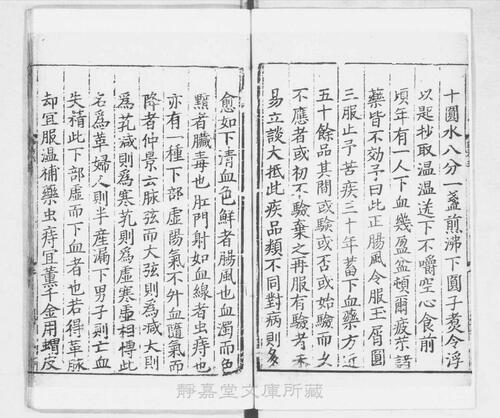 十圓水八分一盞煎沸下圓子煑令浮
以匙抄取溫溫送下不嚼空心食前
頃年有一人下血幾盈盆頓爾疲茶諸
藥皆不効予曰此正腸風令服玉屑圓
三服止予苦疾三十年蓄下血藥方近
五十餘品其間或驗或否或始驗而久
不應者或初不驗棄之再服有驗者未
易立談大抵此疾品類不同對病則
愈如下清血色鮮者腸風也血濁而色
黯者臟毒也肛門射如血線者虫痔也
亦有一種下部虛陽氣不升血隨氣而
降者仲景云脉弦而大弦則爲減大則
爲芤減則爲寒芤則爲虛寒虛相搏此
名爲革婦人則半產漏下男子則亡血
失精此下部虛而下血者也若得革脉
却宜服溫補藥虫痔宜薰千金用蝟皮
靜嘉堂文庫所藏